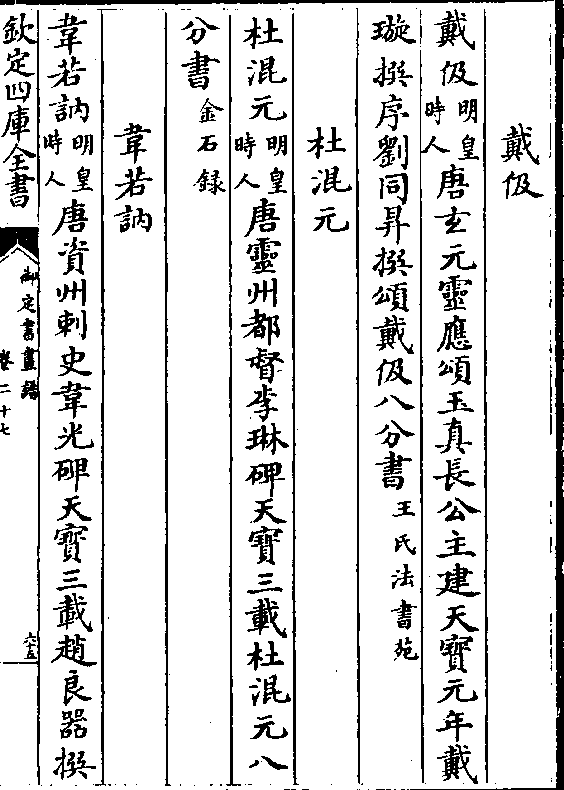 戴伋
戴伋明皇時人唐玄元靈應頌玉真長公主建天寶元年戴
璇撰序劉同昇撰頌戴伋八分書王氏法書苑
杜混元
杜混元明皇時人唐靈州都督李琳碑天寶三載杜混元八
分書金石録
韋若訥
韋若訥明皇時人唐資州刺史韋光碑天寶三載趙良器撰
欽定四庫全書
御定書畫譜
卷二十七
六五